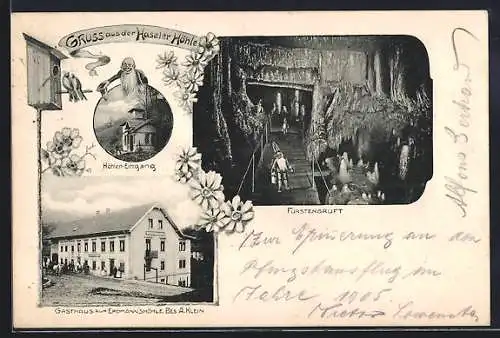 GRUSS aus der Haseler Höhle
Höhlen-Eingang
FÜRSTENGRUFT
GASTHAUS ZUR ERDMANNSHÖHLE BES. A. KLEIN
Zur Erinnerung an den
Pfingstausflug im
Jahre 1905.